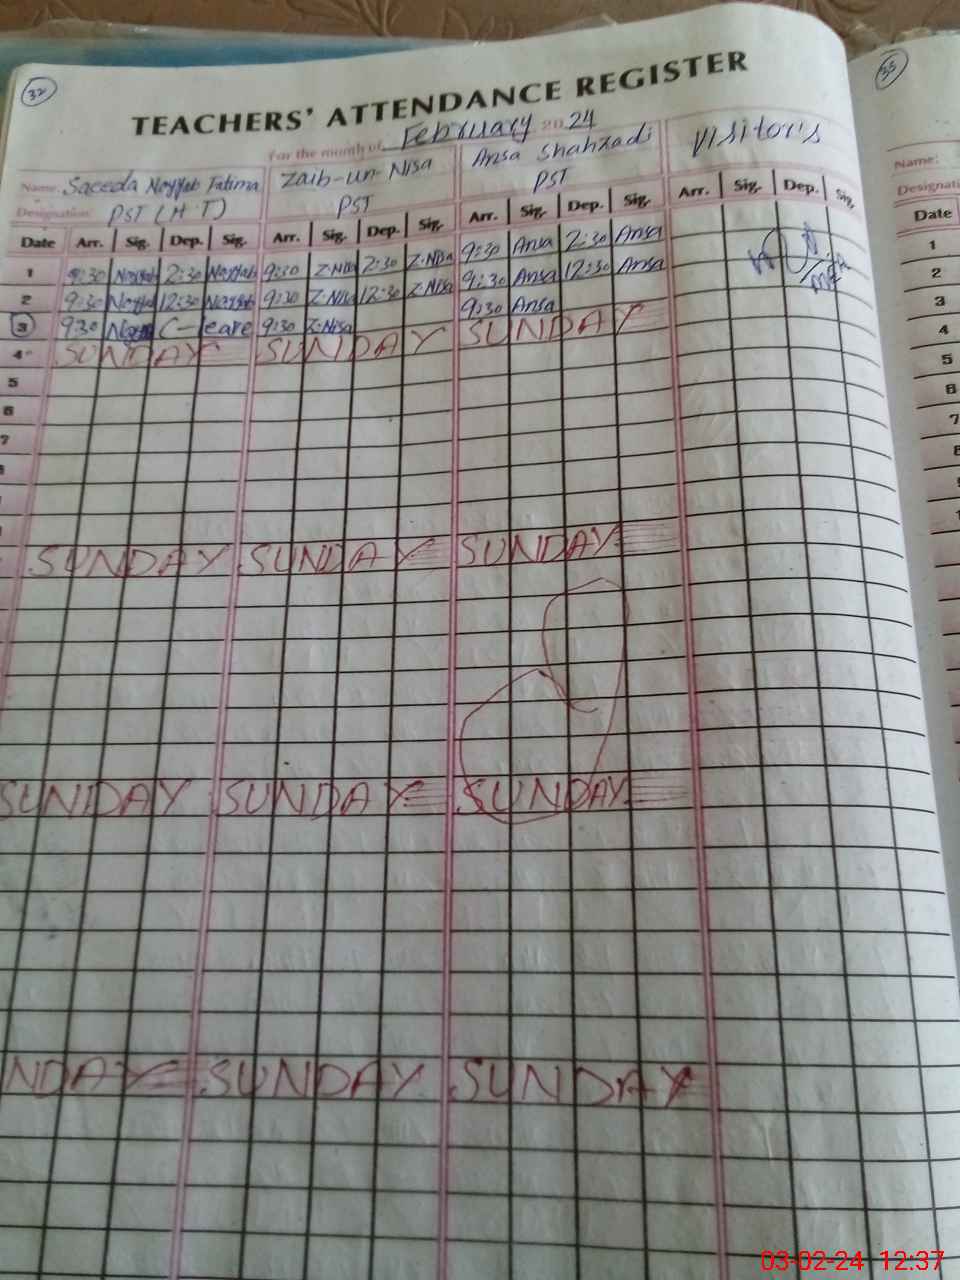 32
35
TEACHERS' ATTENDANCE REGISTER
For the month of February 2024
Name: Saeeda Nayyab Fatima Zaib-un-Nisa Ansa Shahzadi Visitor's
Name:
Designation: PST (H.T) PST PST
Designati
Date Arr. Sig. Dep. Sig. Arr. Sig. Dep. Sig. Arr. Sig. Dep. Sig. Arr. Sig. Dep. Sig. Date
1 9:30 Nayyab 2:30 Nayyab 9:30 Z.Nisa 2:30 Z.Nisa 9:30 Ansa 2:30 Ansa 1
2 9:30 Nayyab 12:30 Nayyab 9:30 Z.Nisa 12:30 Z.Nisa 9:30 Ansa 12:30 Ansa 2
3 9:30 C-leave 9:30 Z.Nisa 9:30 Ansa 3
4 SUNDAY SUNDAY SUNDAY 4
5 5
6 6
7 7
8
SUNDAY SUNDAY SUNDAY
SUNDAY SUNDAY SUNDAY
NDAY SUNDAY SUNDAY
03-02-24 12:37